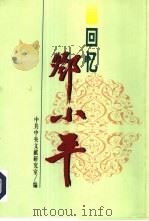 回忆
邓小平
中共中央文献研究室/编